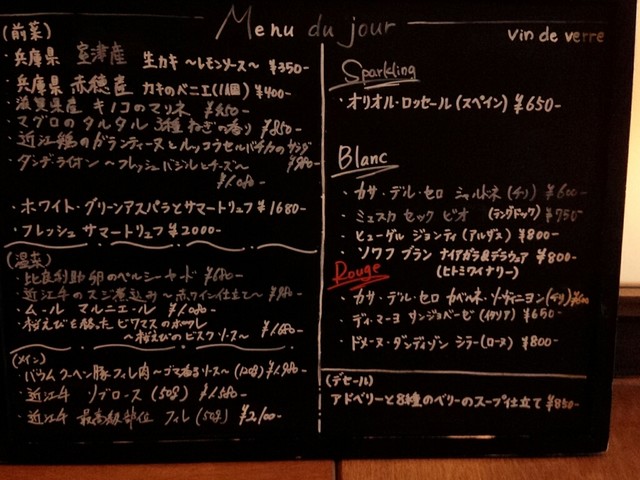 Menu du jour
(前菜)
・兵庫県 室津産 生カキ〜レモンソース〜 ¥350-
・兵庫県 赤穂産 カキのベニエ(1個) ¥400-
・滋賀県産 キノコのマリネ ¥650-
・マグロのタルタル 3種ねぎの香り ¥850-
・近江鶏のガランティーヌとルッコラセルバチカのサラダ ¥980-
・ダンデライオン〜フレッシュバジルとチーズ〜
¥1,080-
・ホワイト・グリーンアスパラとサマートリュフ ¥1680-
・フレッシュ サマートリュフ ¥2000-
(温菜)
・比良利助 卵のペルシヤード ¥680-
・近江牛のスジ煮込み〜赤ワイン仕立て〜 ¥980-
・ムール マルニエール ¥1,080-
・桜えびを詰めた ビワマスのポワレ
〜桜えびのビスクソース〜 ¥1,680-
(メイン)
・バウムクーヘン豚フィレ肉〜ゴマ香るソース〜(120g) ¥1,980-
・近江牛 リブロース (50g) ¥1,580-
・近江牛 最高級部位 フィレ (50g) ¥2,100-
vin de verre
Sparkling
・オリオル・ロッセール(スペイン) ¥650-
Blanc
・カサ・デル・セロ シャルドネ(チリ) ¥600-
・ミュスカ セック ビオ (ラングドック) ¥750-
・ヒューゲル ジョンティ(アルザス) ¥800-
・ソワフ ブラン ナイアガラ&デラウェア ¥800-
(ヒトミワイナリー)
Rouge
・カサ・デル・セロ カベルネ・ソーヴィニヨン(チリ) ¥600
・ディ・マーヨ サンジョベーゼ(イタリア) ¥650-
・ドメーヌ・ダンディゾン シラー(ローヌ) ¥800-
(デセール)
アドベリーと8種のベリーのスープ仕立て ¥850-